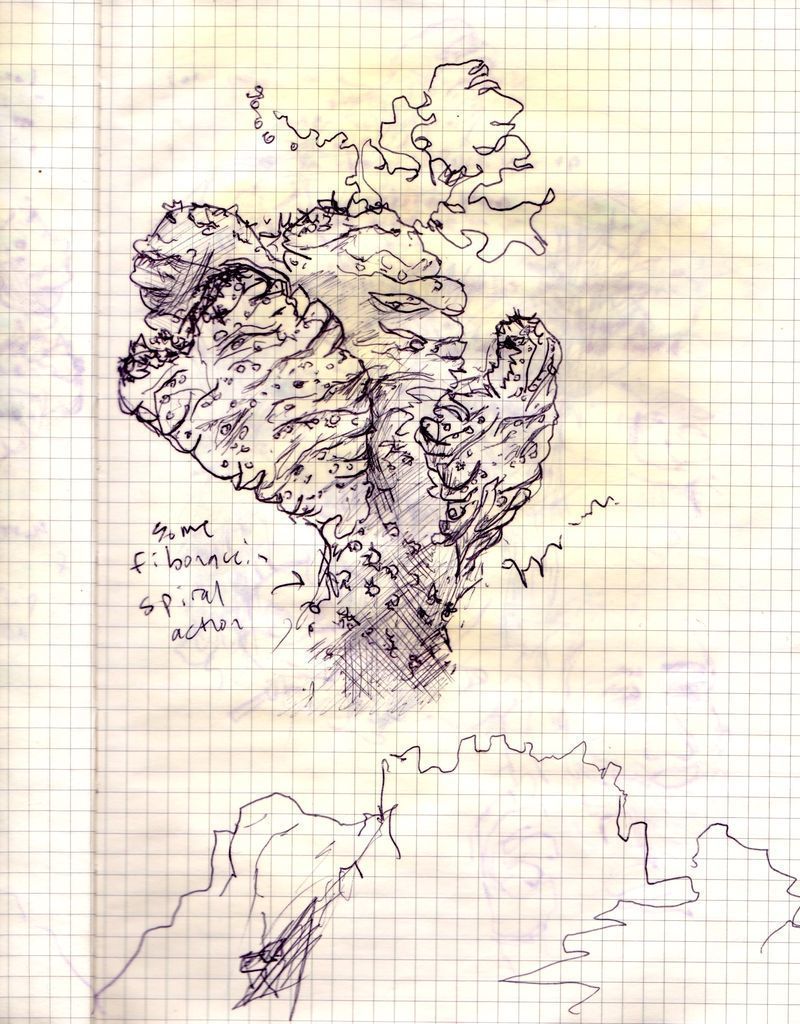 some
fibonacci
spiral
action